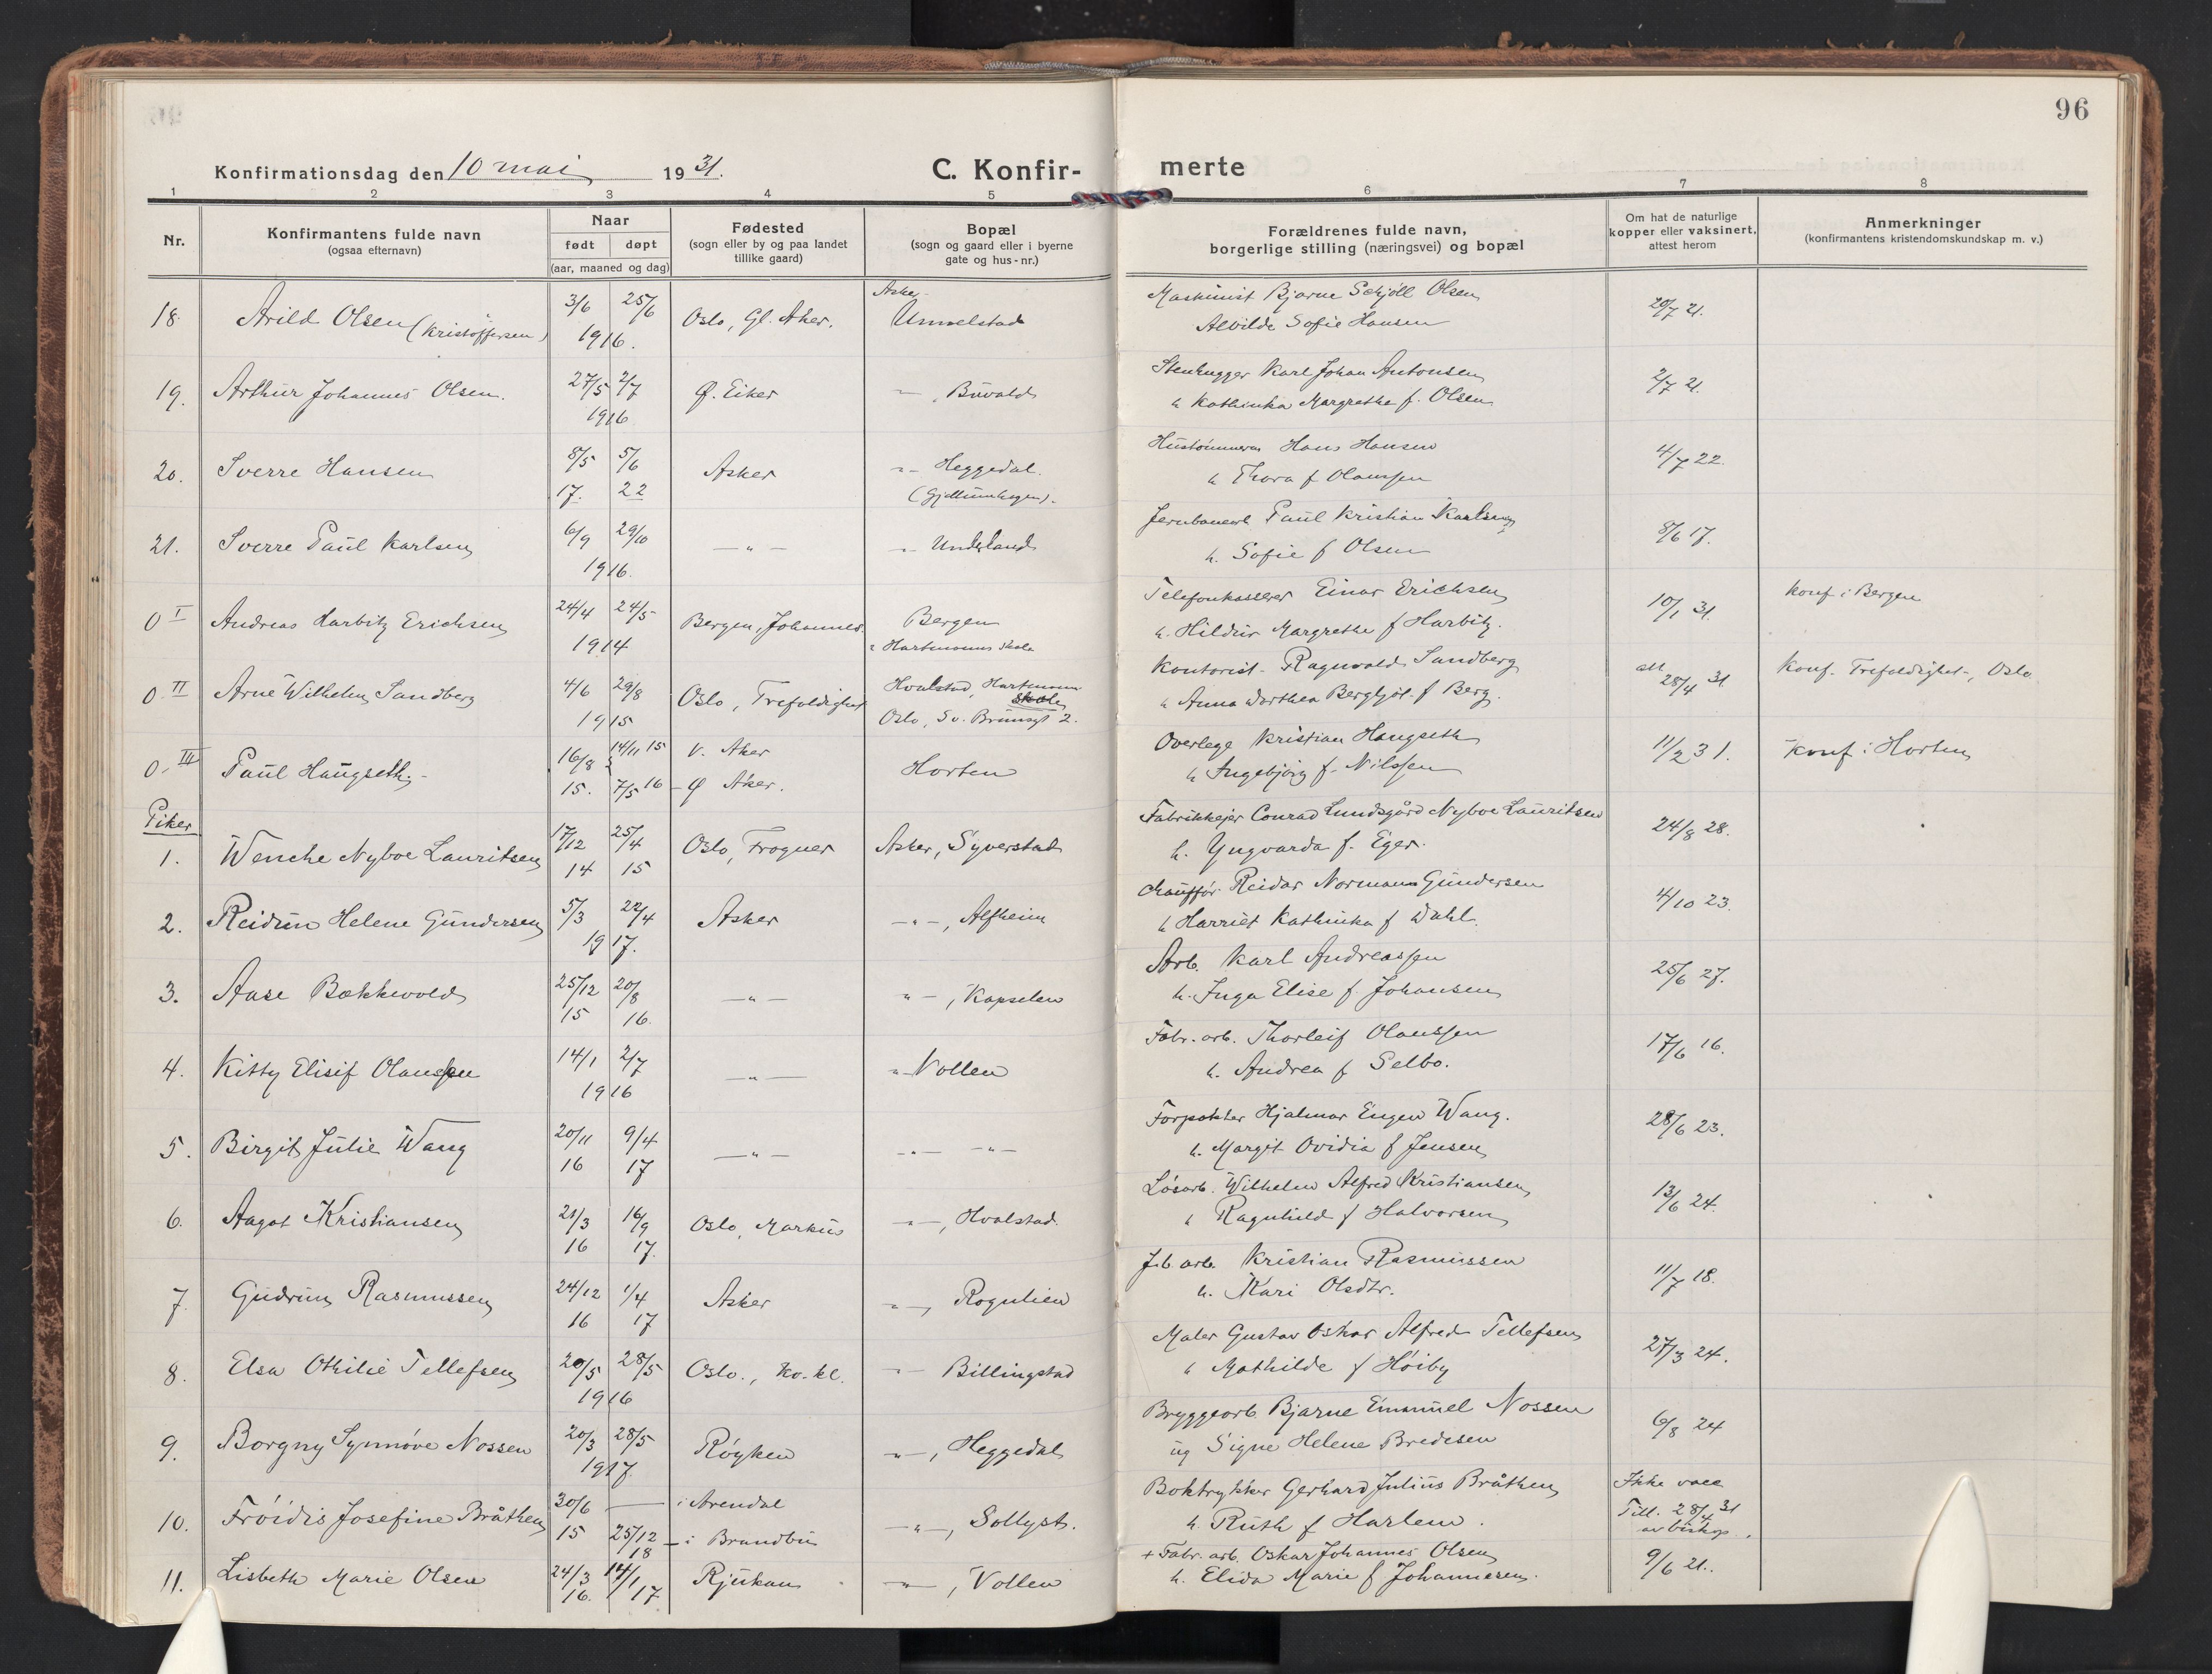 96
Konfirmationsdag den 10 mai 1931.
C. Konfir- merte
1 2 3 4 5 6 7 8
Nr.
Konfirmantens fulde navn
(ogsaa efternavn)
Naar
født døpt
(aar, maaned og dag)
Fødested
(sogn eller by og paa landet
tillike gaard)
Bopæl
(sogn og gaard eller i byerne
gate og hus-nr.)
Forældrenes fulde navn,
borgerlige stilling (næringsvei) og bopæl
Om hat de naturlige
kopper eller vaksinert,
attest herom
Anmerkninger
(konfirmantens kristendomskundskap m. v.)
18. Arild Olsen (Kristoffersen) 3/6 25/6 1916. Oslo, Gl. Aker. Asker Unnelstad Maskinist Bjarne Schjöll Olsen 20/7 21.
Alvilde Sofie Hansen
19. Arthur Johannes Olsen. 27/5 2/7 1916 Ø. Eiker — , Buvald Stenhugger Karl Johan Antonsen 2/7 21.
h. Kathinka Margrethe f. Olsen
20. Sverre Hansen 8/5 17. 5/6 22 Asker -"- Heggedal. Hustømmerm Hans Hansen 4/7 22.
(Gjellumhagen). h. Thora f Olaussen
21. Sverre Paul Karlsen 6/9 29/10 1916. —"— -"- Underland Jernbanearb Paul Kristian Karlsen 8/6 17.
h. Sofie f Olsen
0 I Andreas Harbitz Erichsen 24/4 24/5 1914 Bergen, Johannes. Bergen Telefonkasserer Einar Erichsen 10/1 31. Konf. i Bergen
" Hartmanns skole h. Hildur Margrethe f Harbitz.
0. II Arne Wilhelm Sandberg 4/6 29/8 1915 Oslo, Trefoldighet Hvalstad, Hartmann skole Kontorist Ragnvald Sandberg att 28/4 31 Konf. Trefoldighet-, Oslo
Oslo, Sv. Brunsgt 2. h Anna Dorthea Bergljot f Berg.
0. III Paul Haugseth. 16/8 15. 14/11 15 V. Aker Horten Overlege Kristian Haugseth 11/2 31. Konf. i Horten
7/5 16 - Ø Aker. h Ingebjörg f. Nilssen
Piker
1. Wenche Nyboe Lauritsen 17/12 14 25/4 15 Oslo, Frogner Asker, Syverstad Fabrikkejer Conrad Lundsgård Nyboe Lauritsen 24/8 28.
h. Yngvarda f. Eger.
2. Reidun Helene Gundersen 5/3 22/4 1917. Asker —"—, Alfheim Chauffør Reidar Normann Gundersen 4/10 23.
h Harriet Kathinka f Dahl.
3. Aase Bækkevold 25/12 15 20/8 16. —"— "—, Kapselen Arb. Karl Andreassen 25/6 27.
h. Inga Elise f Johansen
4. Kitty Elisif Olaussen 14/1 2/7 1916 —"— "- Vollen Fabr. arb. Thorleif Olaussen 17/6 16.
h. Andrea f Selbo.
5. Birgit Julie Wang 20/11 16 9/4 17 —"— -"- -"- Forpakter Hjalmar Eugen Wang. 28/6 23.
h. Margit Ovidia f Jensen
6. Aagot Kristiansen 21/3 16 16/9 17. Oslo, Markus -"-, Hvalstad. Løsarb. Wilhelm Alfred Kristiansen 13/6 24.
h Ragnhild f Halvorsen
7. Gudrun Rasmussen 24/12 16 1/4 17 Asker -"-, Rognlien J.b. arb. Kristian Rasmussen 11/7 18.
h. Kari Olsdtr.
8. Elsa Othilie Tellefsen 20/5 28/5 1916 Oslo., Kv. kl. -"- Billingstad Maler Gustav Oskar Alfred Tellefsen 27/3 24.
h Mathilde f Høiby
9. Borgny Synnøve Nossen 20/3 28/5 1917. Røyken -"-, Heggedal Bryggearb Bjarne Emanuel Nossen 6/8 24
ug Signe Helene Bredesen
10. Frøidis Josefine Bråthen 30/6 15 — i Arendal —"—, Sollyst. Boktrykker Gerhard Julius Bråthen Ikke vacc
25/12 18 - i Brandbu h. Ruth f Harlem. Till. 28/4 31 av biskop.
11. Lisbeth Marie Olsen 24/3 16. 14/1 17 Rjukan -"-, Vollen + Fabr. arb. Oskar Johannes Olsen 9/6 21.
h. Elida Marie f Johannesen.